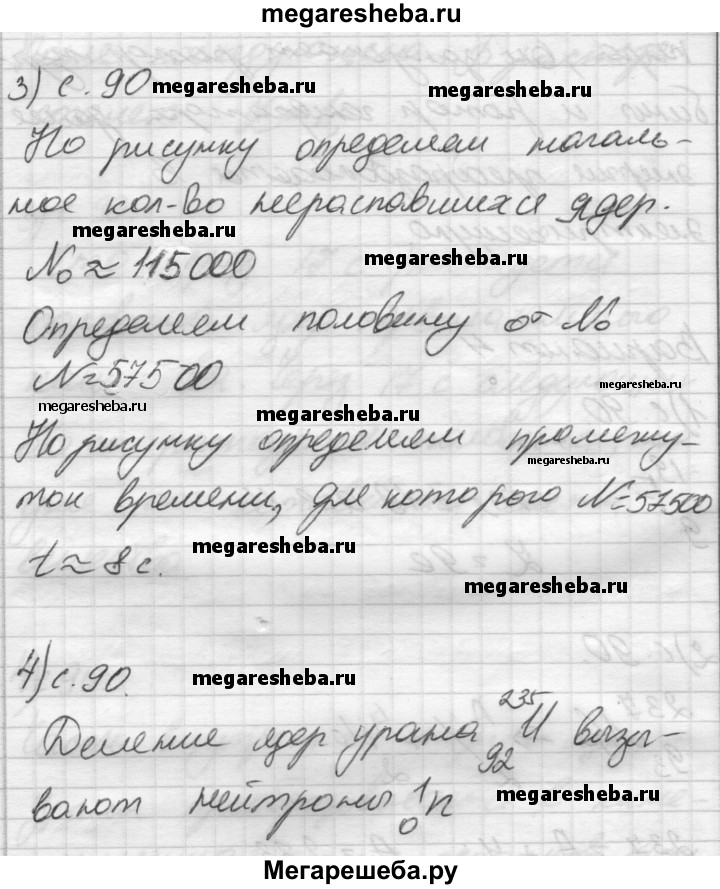 megaresheba.ru
3) с. 90 megaresheba.ru megaresheba.ru
По рисунку определяем началь-
ное кол-во нераспавшихся ядер.
megaresheba.ru
N₀ ≈ 115000 megaresheba.ru
Определяем половину от N₀
N=57500 megaresheba.ru
megaresheba.ru megaresheba.ru
По рисунку определяем промежу-
megaresheba.ru
ток времени, для которого N=57500
t ≈ 8 с. megaresheba.ru
megaresheba.ru
4) с. 90. megaresheba.ru
Деление ядер урана ²³⁵₉₂U вызы-
вают нейтроны ¹₀n megaresheba.ru
Мегарешеба.ру